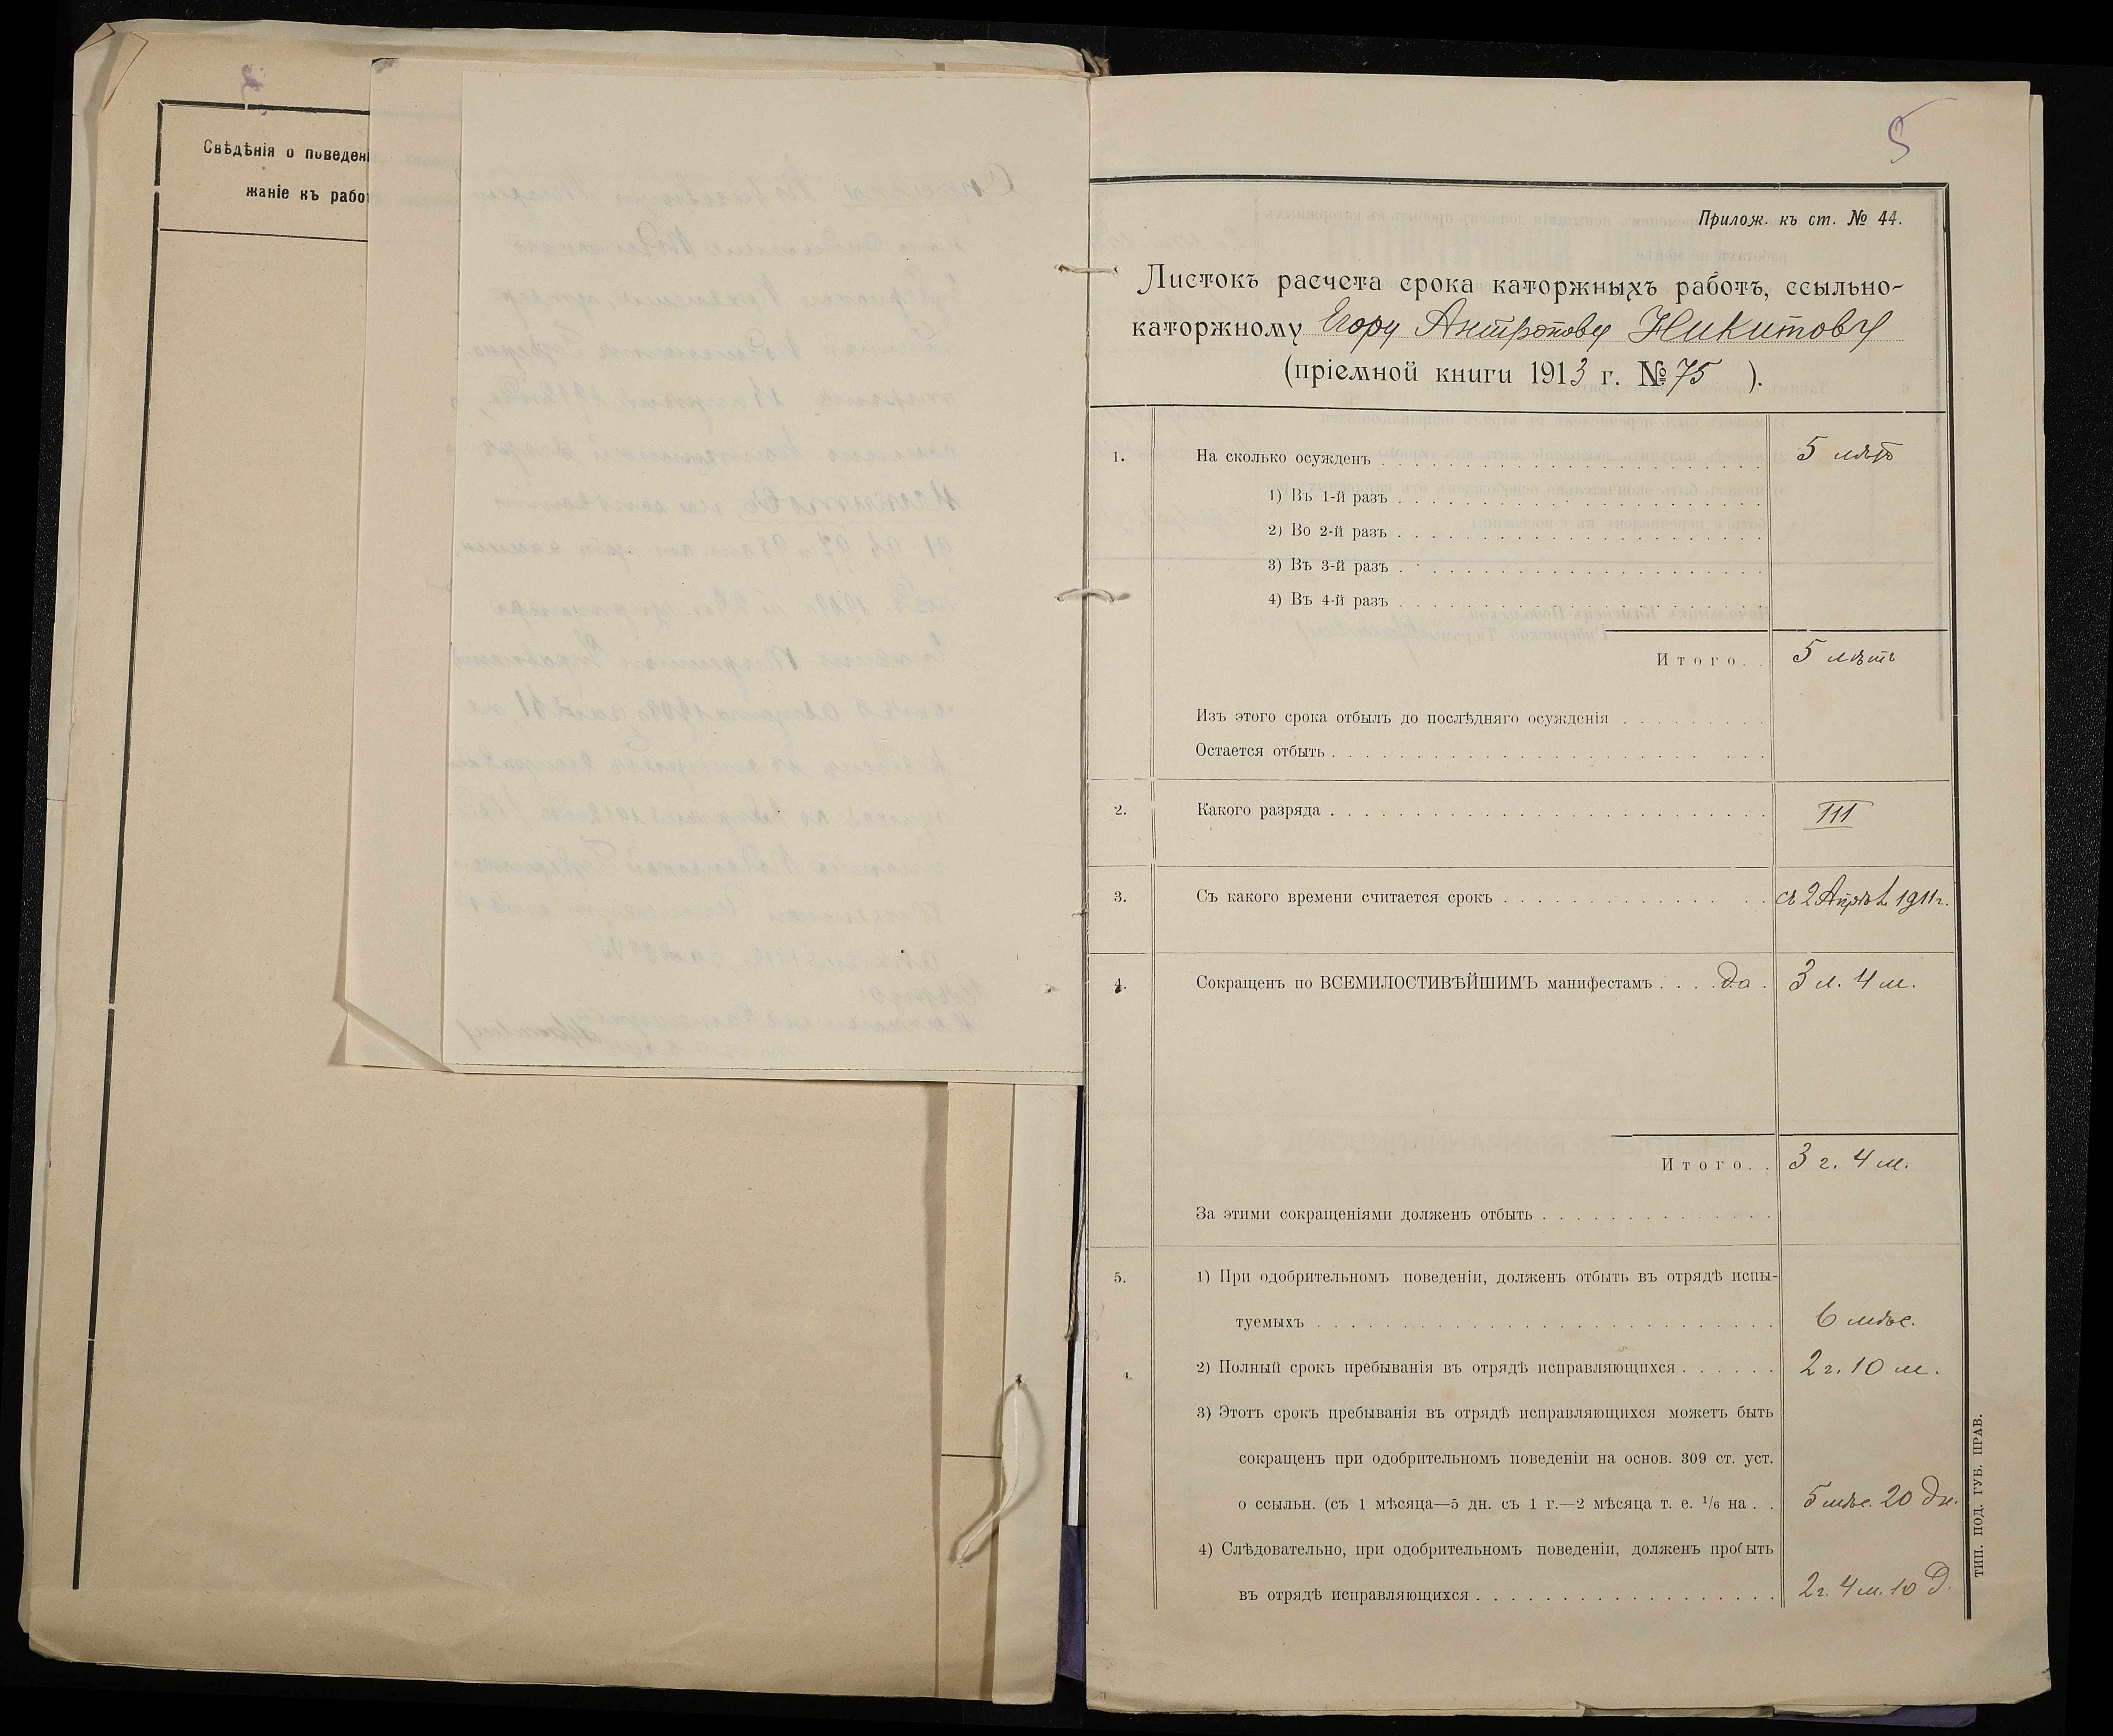 Свѣдѣнія о поведені
жаніе къ рабо
5
Прилож. къ ст. № 44.
Листокъ расчета срока каторжныхъ работъ, ссыльно-
каторжному Егору Антропову Никитову
(пріемной книги 1913 г. № 75 ).
1. На сколько осужденъ 5 лѣтъ
1) Въ 1-й разъ
2) Во 2-й разъ
3) Въ 3-й разъ
4) Въ 4-й разъ
Итого 5 лѣтъ
Изъ этого срока отбылъ до послѣдняго осужденія
Остается отбыть
2. Какого разряда III
3. Съ какого времени считается срокъ съ 2 Апрѣл. 1911 г.
4. Сокращенъ по ВСЕМИЛОСТИВѢЙШИМЪ манифестамъ да 3 л. 4 м.
Итого 3 г. 4 м.
За этими сокращеніями долженъ отбыть
5. 1) При одобрительномъ поведеніи, долженъ отбыть въ отрядѣ испы-
туемыхъ 6 мѣс.
2) Полный срокъ пребыванія въ отрядѣ исправляющихся 2 г. 10 м.
3) Этотъ срокъ пребыванія въ отрядѣ исправляющихся можетъ быть
сокращенъ при одобрительномъ поведеніи на основ. 309 ст. уст.
о ссыльн. (съ 1 мѣсяца—5 дн. съ 1 г.—2 мѣсяца т. е. 1/6 на 5 мѣс. 20 дн.
4) Слѣдовательно, при одобрительномъ поведеніи, долженъ пробыть
въ отрядѣ исправляющихся 2 г. 4 м. 10 д.
ТИП. ПОД. ГУБ. ПРАВ.